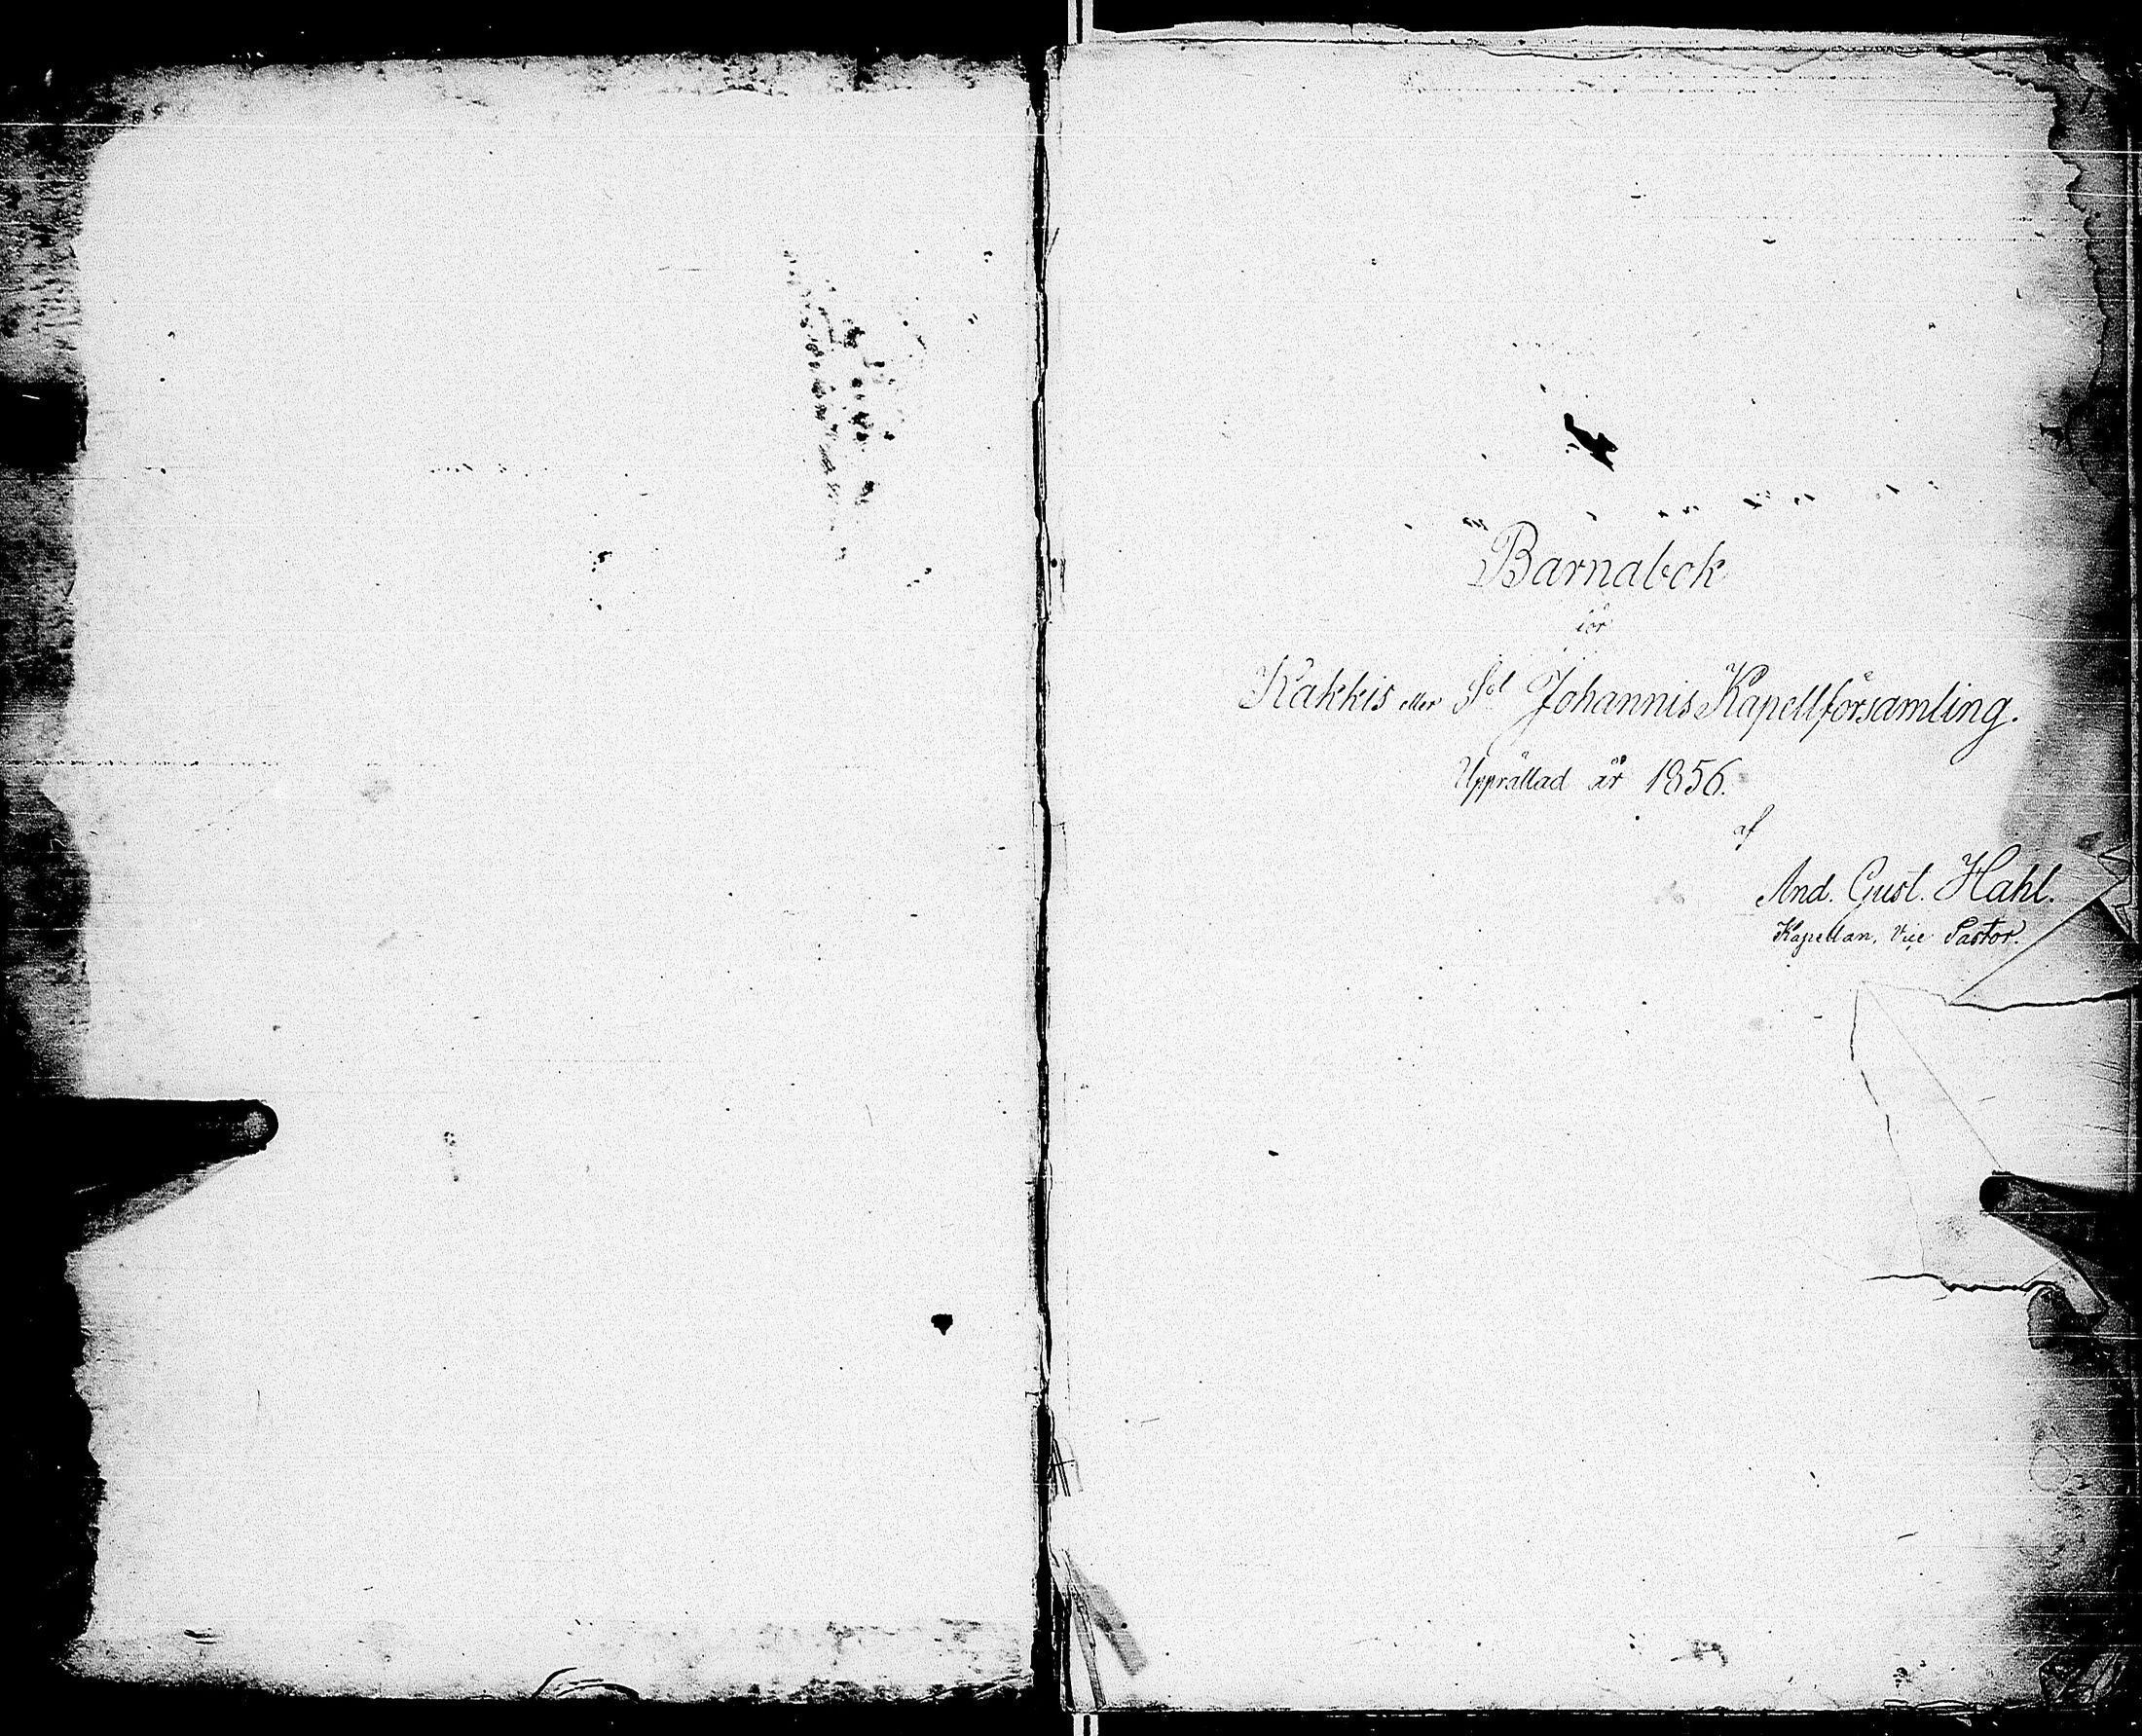 Barnabok
för
Kakkis eller Sct Johannis Kapellförsamling.
Upprättad år 1856.
af
And. Gust. Hahl.
Kapellan, Vice Pastor.